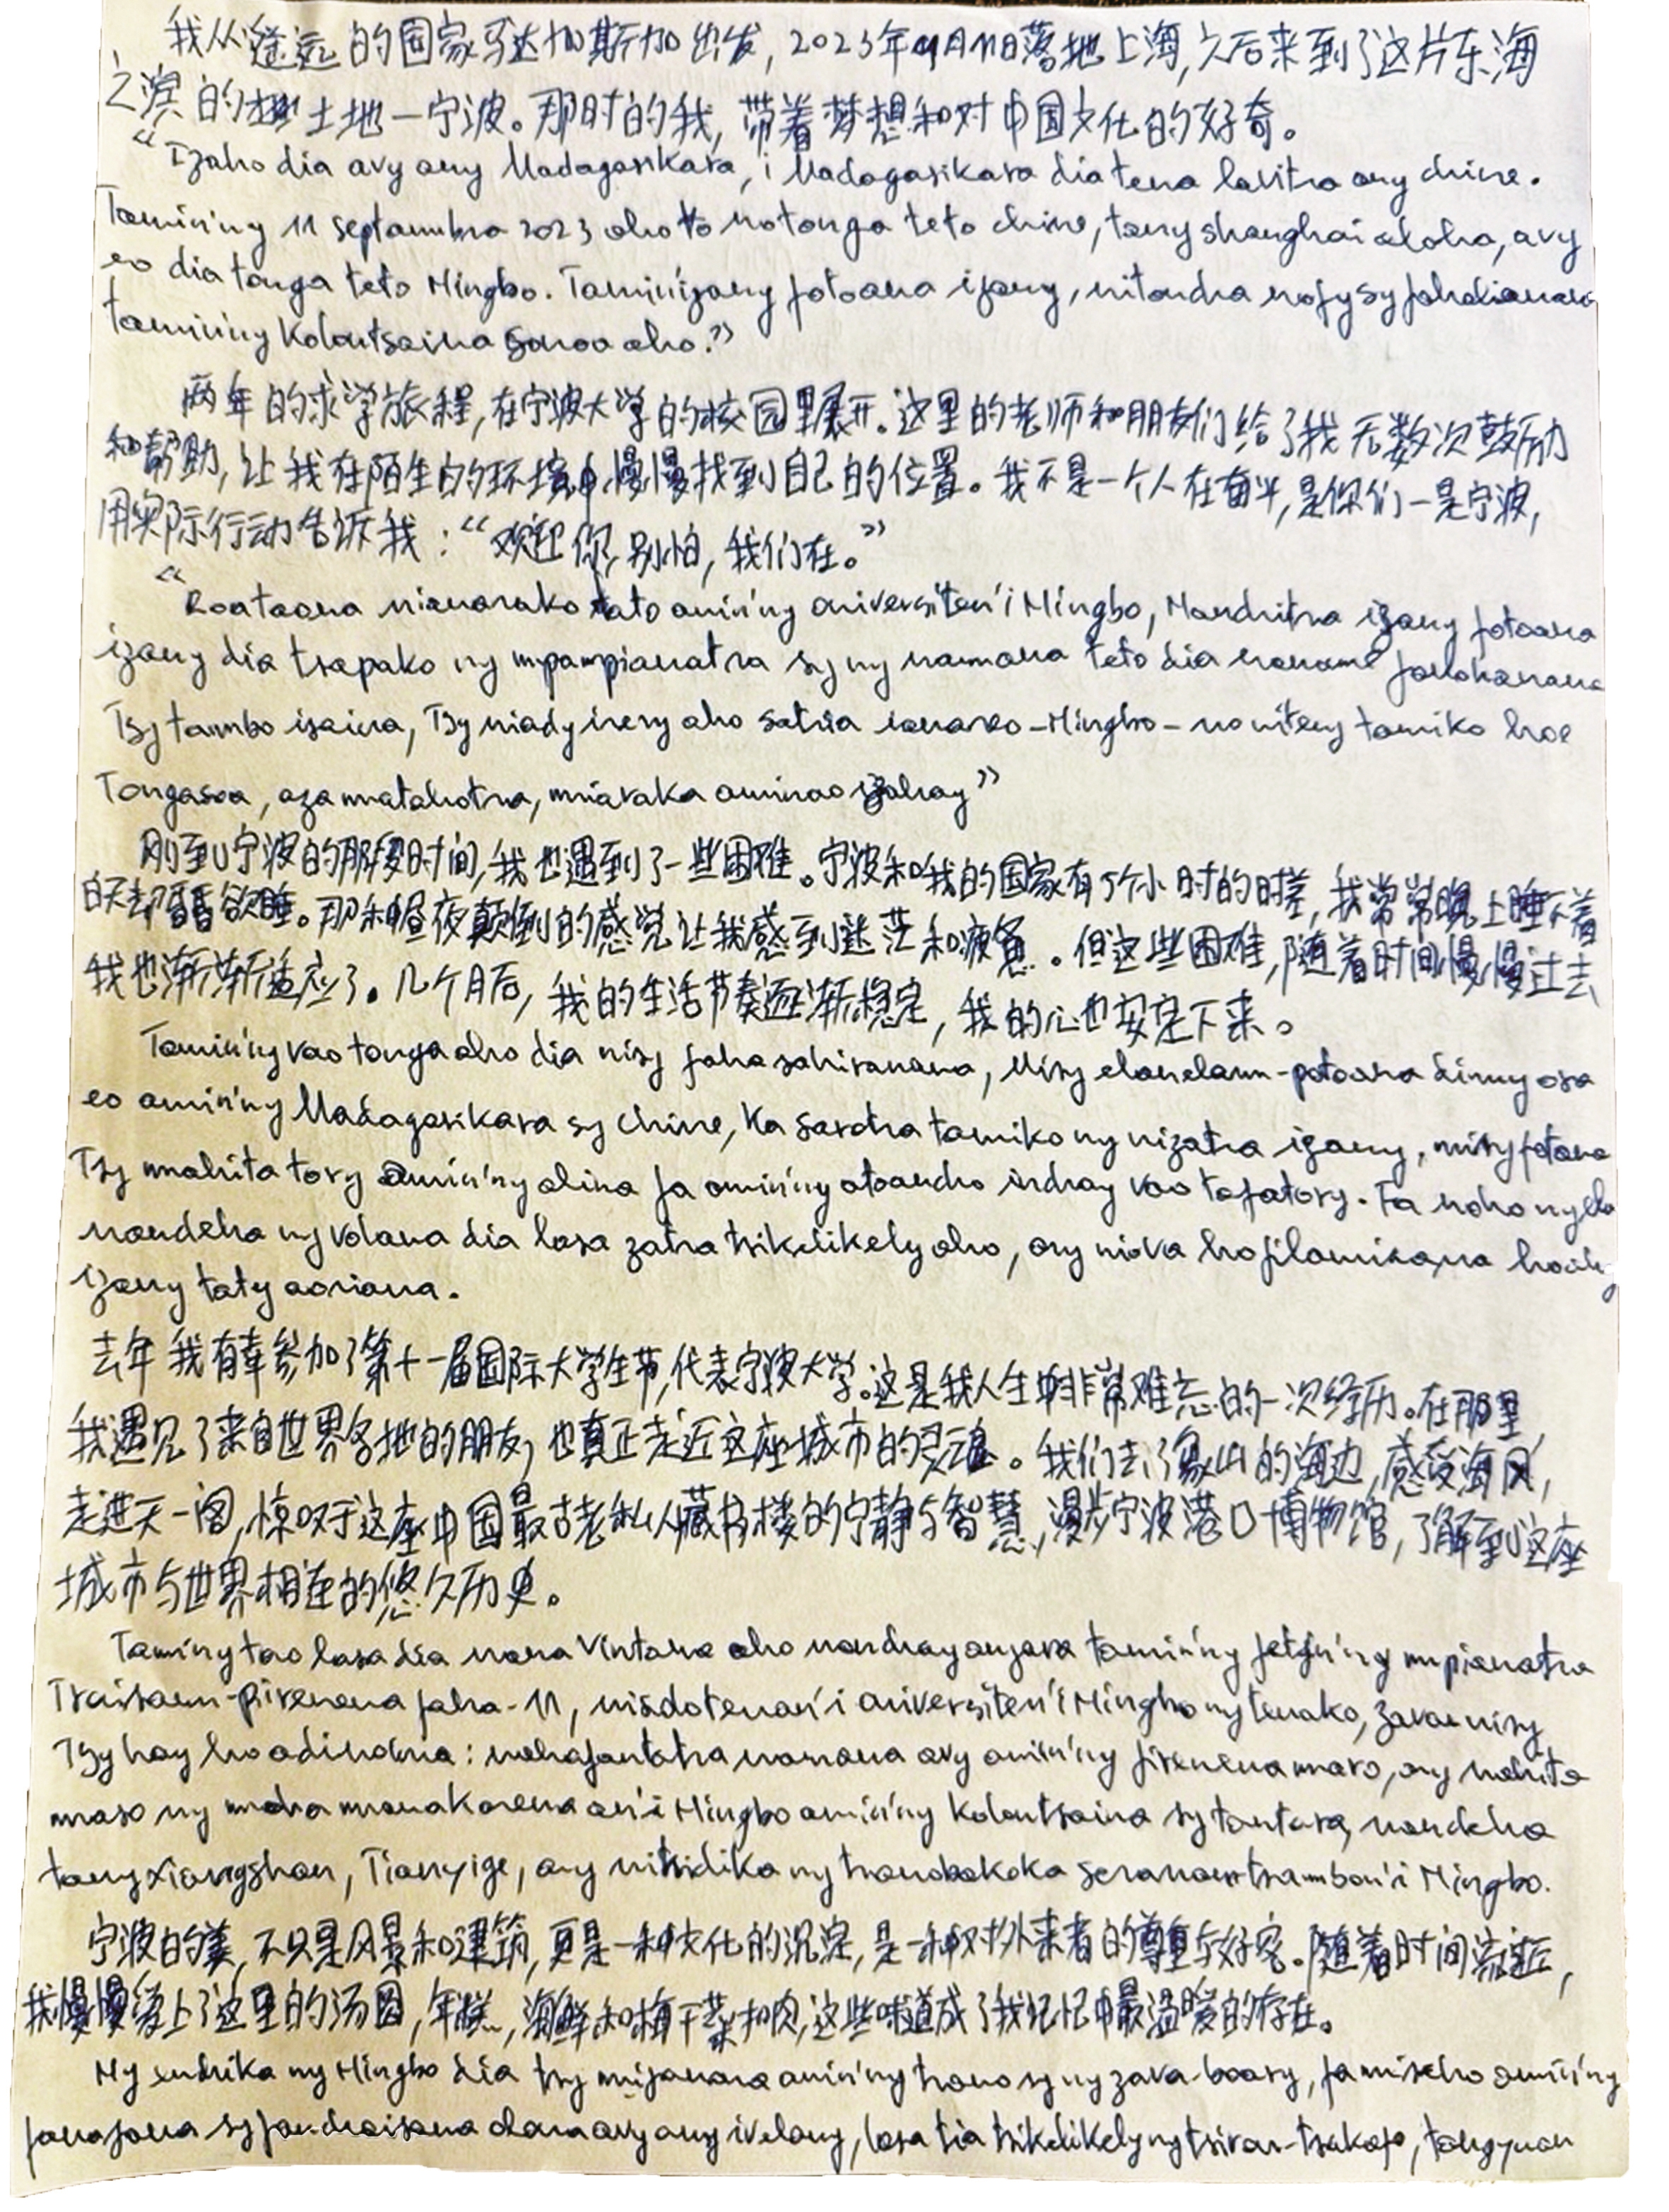 我从遥远的国家马达加斯加出发，2023年9月11日落地上海，之后来到了这片东海
之滨的土地一宁波。那时的我，带着梦想和对中国文化的好奇。
“Izaho dia avy any Madagasikara, i Madagasikara dia tena lavitra any chine.
Tamin'ny 11 septambra 2023 aho no tonga teto chine, tany shanghai aloha, avy
eo dia tonga teto Ningbo. Tamin'izany fotoana izany, nitondra nofy sy fahalianana
tamin'ny Kolontsaina sinoa aho.”
两年的求学旅程，在宁波大学的校园里展开。这里的老师和朋友们给了我无数次鼓励
和帮助，让我在陌生的环境中慢慢找到自己的位置。我不是一个人在奋斗，是你们一是宁波，
用实际行动告诉我：“欢迎你，别怕，我们在。”
“Roa taona nianarako tato amin'ny oniversiten'i Ningbo, Nandritra izany fotoana
izany dia tsapako ny mpampianatra sy ny namana teto dia nanome fanohanana
Tsy tambo isaina, Tsy niady irery aho satria ianareo - Ningbo - no niteny tamiko hoe
Tongasoa, aza matahotra, miaraka aminao izahay”
刚到宁波的那段时间，我也遇到了一些困难。宁波和我的国家有5个小时的时差，我常常晚上睡不着
白天却昏昏欲睡。那种昼夜颠倒的感觉让我感到迷茫和疲惫。但这些困难，随着时间慢慢过去
我也渐渐适应了。几个月后，我的生活节奏逐渐稳定，我的心也安定下来。
Tamin'ny vao tonga aho dia nisy fahasahiranana, Misy elanelam-potoana dimy ora
eo amin'ny Madagasikara sy chine, ka sarotra tamiko ny nizatra izany, misy fotoana
Tsy mahita tory amin'ny alina fa amin'ny atoandro indray vao te hatory. Fa noho ny
nandeha ny volana dia lasa zatra tsikelikely aho, ary niova ho filaminana
izany taty aoriana.
去年我有幸参加了第十一届国际大学生节，代表宁波大学。这是我人生中非常难忘的一次经历。在那里
我遇见了来自世界各地的朋友，也真正走近这座城市的灵魂。我们去了象山的海边，感受海风，
走进天一阁，惊叹于这座中国最古老私人藏书楼的宁静与智慧，漫步宁波港口博物馆，了解到这座
城市与世界相连的悠久历史。
Tamin'ny tao lasa dia nana vintana aho nandray anjara tamin'ny fetin'ny mpianatra
Iraisam-pirenena faha-11, nisolotenan'i oniversiten'i Ningbo ny tenako, zava nisy
Tsy hay hoadinoina: nahafantatra namana avy amin'ny firenena maro, ary nahita
maso ny maha manakarena an'i Ningbo amin'ny Kolontsaina sy tantara, nandeha
tany xiangshan, Tianyige, ary nitsidika ny tranobakoka seranan-tsambon'i Ningbo.
宁波的美，不只是风景和建筑，更是一种文化的沉淀，是一种对外来者的尊重与好客。随着时间流逝，
我慢慢爱上了这里的汤圆，年糕，海鲜和梅干菜扣肉，这些味道成了我记忆中最温暖的存在。
Ny endrika ny Ningbo dia tsy mijanona amin'ny trano sy ny zava-boary, fa miseho amin'ny
fanajana sy fandraisana olona avy any ivelany, lasa tia tsikelikely ny tsiron-tsakafo, tangyuan